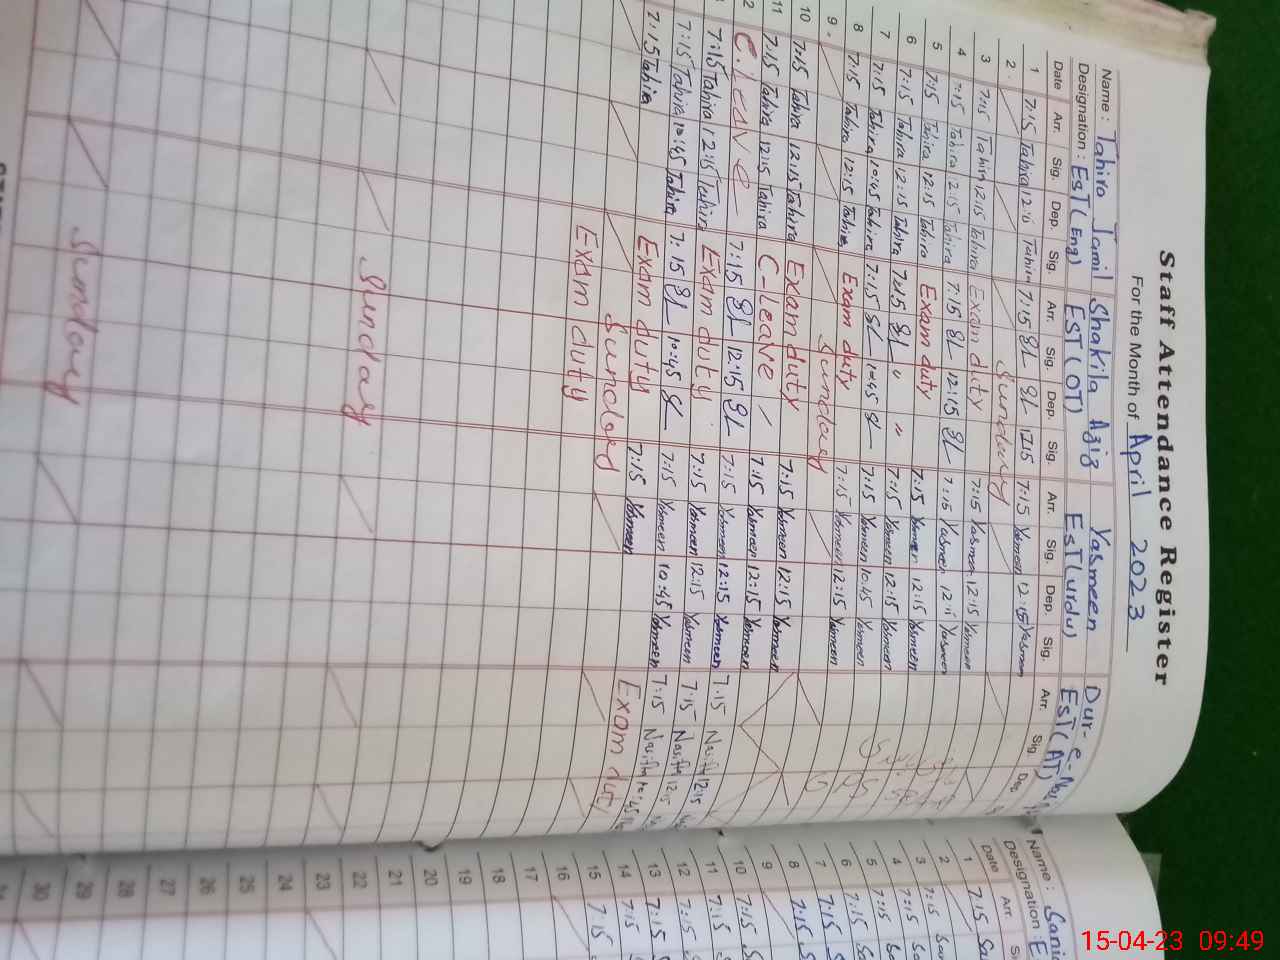 Staff Attendance Register
For the Month of April 2023
Name: Tahira Jamil Shakila Aziz Yasmeen Dur-e-
Designation: EST(Eng) EST(OT) EST(urdu) EST(AT)
Date Arr. Sig. Dep. Sig. Arr. Sig. Dep. Sig. Arr. Sig. Dep. Sig. Arr. Sig. Dep.
1 7:15 Tahira 12:15 Tahira 7:15 SL SL 1215 7:15 Yasmeen 12:15 Yasmeen
2 Sunday
3 7:15 Tahira 12:15 Tahira Exam duty 7:15 Yasmeen 12:15 Yasmeen
4 7:15 Tahira 12:15 Tahira 7:15 SL 12:15 SL 7:15 Yasmeen 12:15 Yasmeen
5 7:15 Tahira 12:15 Tahira Exam duty 7:15 Yasmeen 12:15 Yasmeen
6 7:15 Tahira 12:15 Tahira 7:15 SL " " 7:15 Yasmeen 12:15 Yasmeen
7 7:15 Tahira 10:45 Tahira 7:15 SL 10:45 SL 7:15 Yasmeen 10:45 Yasmeen
8 7:15 Tahira 12:15 Tahira Exam duty 7:15 Yasmeen 12:15 Yasmeen
9 Sunday
10 7:15 Tahira 12:15 Tahira Exam duty 7:15 Yasmeen 12:15 Yasmeen
11 7:15 Tahira 12:15 Tahira C-Leave 7:15 Yasmeen 12:15 Yasmeen
2 C. Leave 7:15 SL 12:15 SL 7:15 Yasmeen 12:15 Yasmeen 7:15 12:15
7:15 Tahira 12:15 Tahira Exam duty 7:15 Yasmeen 12:15 Yasmeen 7:15 12:15
7:15 Tahira 10:45 Tahira 7:15 SL 10:45 SL 7:15 Yasmeen 10:45 Yasmeen 7:15 10:45
7:15 Tahira Exam duty 7:15 Yasmeen Exam duty
Exam duty
Sunday
Sunday
Name: Sania
Designation: E
Date Arr.
1 7:15
2
3 7:15
4 7:15
5 7:15
6 7:15
7 7:15
8 7:15
9
10 7:15
11 7:15
12 7:15
13 7:15
14 7:15
15 7:15
16
17
18
19
20
21
22
23
24
25
26
27
28
29
30
15-04-23 09:49